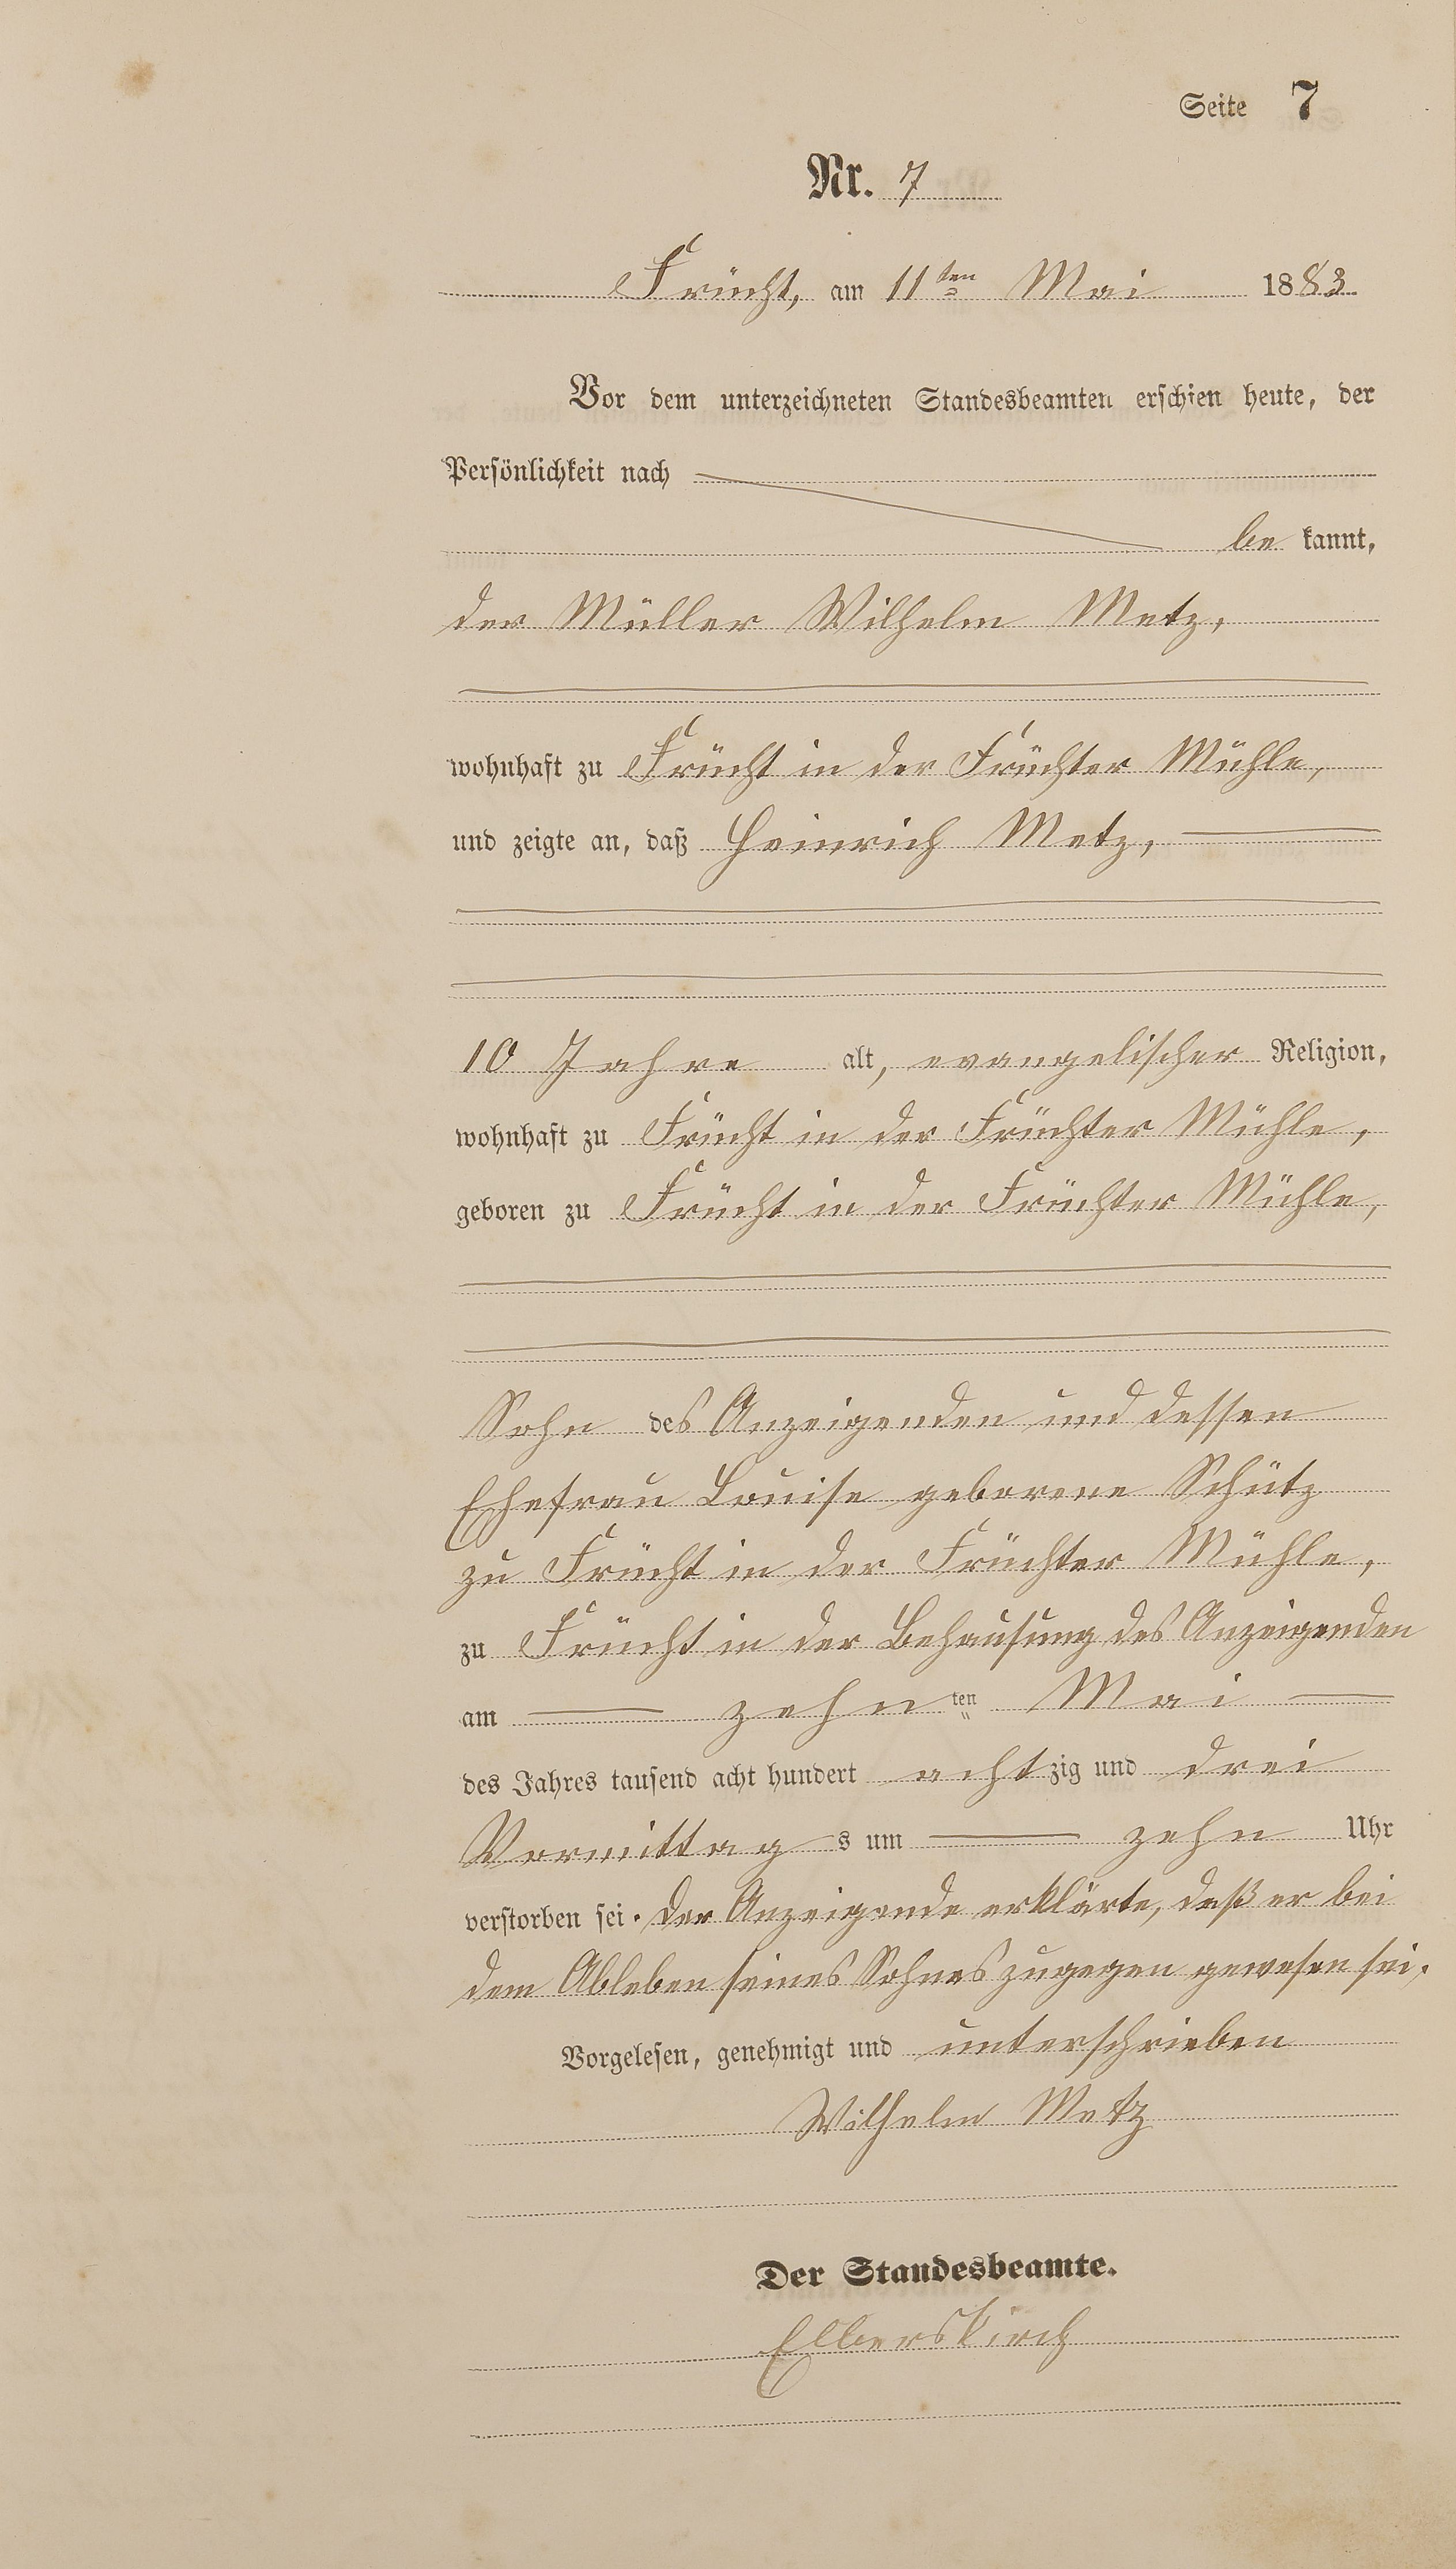 Seite 7
Nr. 7
Frücht, am 11ten Mai 1883
Vor dem unterzeichneten Standesbeamten erschien heute, der
Persönlichkeit nach
be kannt,
der Müller Wilhelm Metz,
wohnhaft zu Frücht in der Früchter Mühle,
und zeigte an, daß Heinrich Metz,
10 Jahre alt, evangelischer Religion,
wohnhaft zu Frücht in der Früchter Mühle,
geboren zu Frücht in der Früchter Mühle,
Sohn des Anzeigenden und dessen
Ehefrau Louise geborene Schütz
zu Frücht in der Früchter Mühle,
zu Frücht in der Behausung des Anzeigenden
am zehn ten Mai
des Jahres tausend acht hundert acht zig und drei
Vormittag s um zehn Uhr
verstorben sei. Der Anzeigende erklärte, daß er bei
dem Ableben seines Sohnes zugegen gewesen sei.
Vorgelesen, genehmigt und unterschrieben
Wilhelm Metz
Der Standesbeamte.
Elberskirch